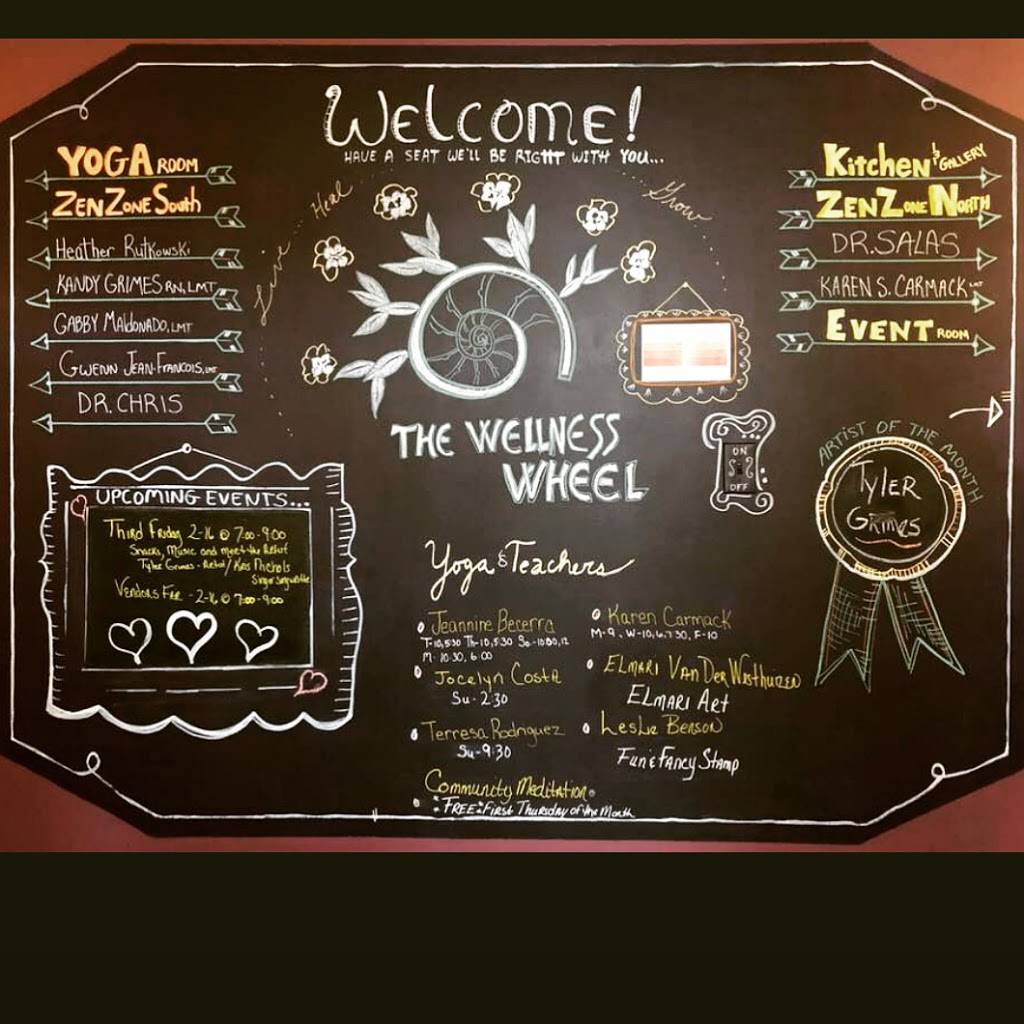 WELCOME!
HAVE A SEAT WE'LL BE RIGHT WITH YOU...
Live Heal Grow
YOGA ROOM
ZENZONE South
Heather Rutkowski
KANDY GRIMES RN, LMT
GABBY MALDONADO, LMT
GWENN JEAN-FRANCOIS, LMT
DR. CHRIS
Kitchen & GALLERY
ZENZONE NORTH
DR. SALAS
KAREN S. CARMACK LMT
EVENT ROOM
THE WELLNESS
WHEEL
ON
OFF
ARTIST OF THE MONTH
TYLER
GRIMES
UPCOMING EVENTS...
Third Friday 2-16 @ 7:00-9:00
Snacks, Music and meet the Artist
Tyler Grimes - Artist/ Kris Nichols
Singer Songwriter
VENDORS FAIR - 2-16 @ 7:00-9:00
Yoga & Teachers
Jeannine Becerra
T-10,5:30 Th-10,5:30 Sa-10:30,12
M- 10:30, 6:00
Jocelyn Costa
Su-2:30
Terresa Rodriguez
Su-9:30
Karen Carmack
M-9, W-10,6,7:30, F-10
ELMARI VAN DER WESTHUIZEN
ELMARI ART
LESLIE BENSON
FUN & FANCY STAMP
Community Meditation
FREE: First Thursday of the Month